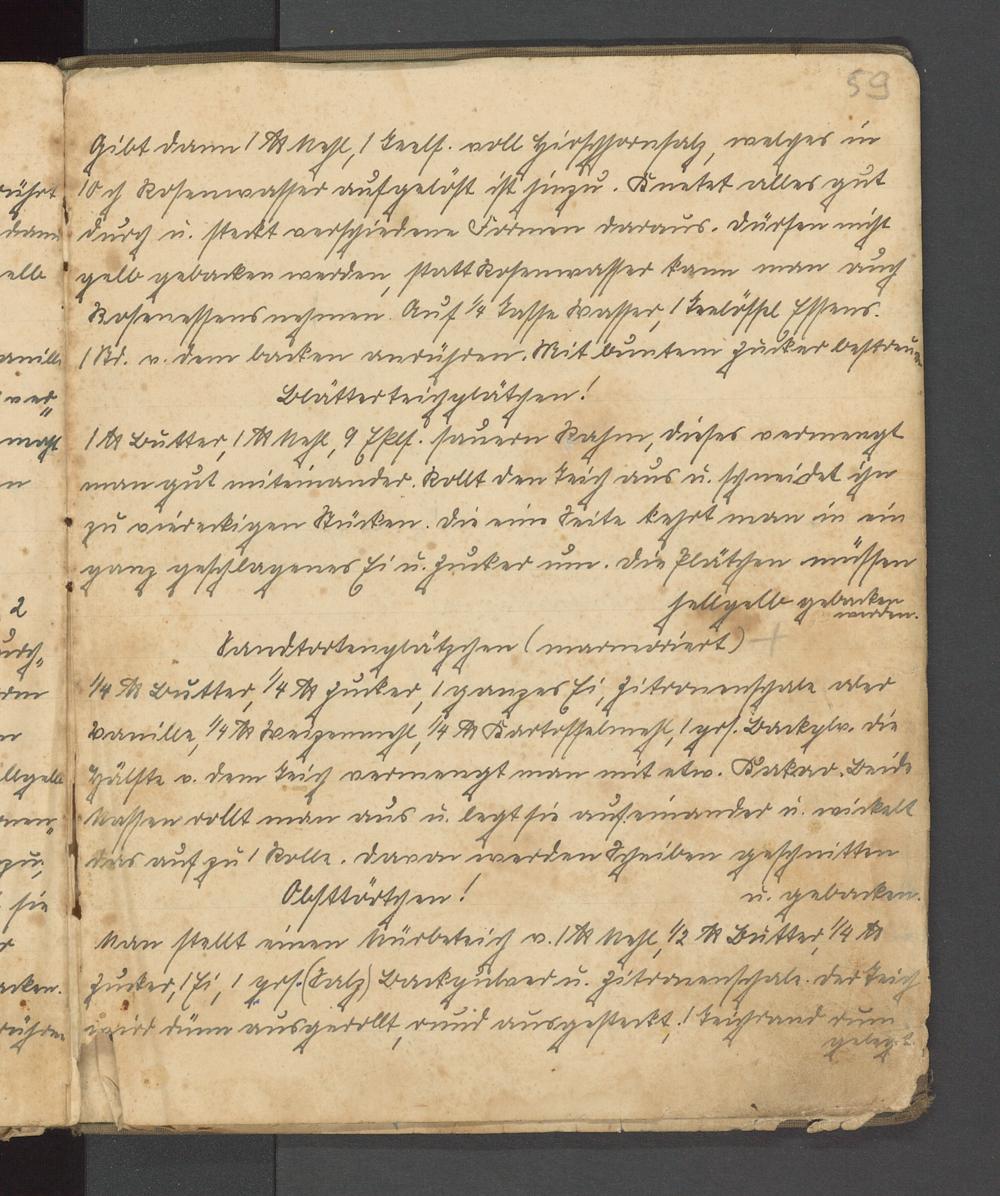 59
Gibt dann 1 ℔ Mehl, 1 Teelf. voll Hirschhornsalz, welches in
10 ch Rosenwasser aufgelöst ist hinzu. Knetet alles gut
durch u. steckt verschiedene Formen daraus. Dürfen nicht
gelb gebacken werden, statt Rosenwasser kann man auch
Rosenessens nehmen. Auf 1/4 Tasse Wasser, 1 Teelöffel Essens.
1 Std. v. dem backen anrühren. Mit buntem Zucker bestreuen
Blätterteichplätchen!
1 ℔ Butter, 1 ℔ Mehl, 9 Eßlf. sauern Rahm, dieses vermengt
man gut miteinander. Rollt den Teich aus u. schneidet ihn
zu viereckigen Stücken. Die eine Seite kehrt man in ein
ganz geschlagenes Ei u. Zucker um. Die Plätchen müssen
hellgelb gebacken
werden.
Sandtortenplätzchen (marmoriert) +
1/4 ℔ Butter, 1/4 ℔ Zucker, 1 ganzes Ei, Zitronenschale oder
Vanille, 1/4 ℔ Weizenmehl, 1/4 ℔ Kartoffelmehl, 1 prs. Backplv. die
Hälfte v. dem Teich vermengt man mit etw. Kakao. Beide
Massen rollt man aus u. legt sie aufeinander u. wickelt
das auf zu 1 Rolle. Davon werden Scheiben geschnitten
u. gebacken.
Obsttörtchen!
Man stellt einen Mürbeteich v. 1 ℔ Mehl, 1/2 ℔ Butter, 1/4 ℔
Zucker, 1 Ei, 1 prs. (Salz) Backpulver u. Zitronenschale. Der Teich
wird dünn ausgerollt, rund ausgesteckt, 1 Teichrand rum
gelegt.